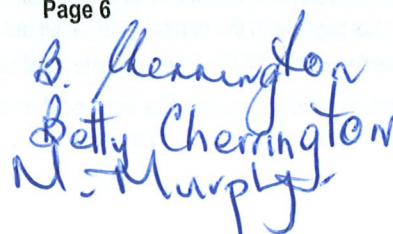 Page 6
B. Cherrington
Betty Cherrington
M. Murphy